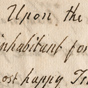 Upon the
inhabitant for
ost happy